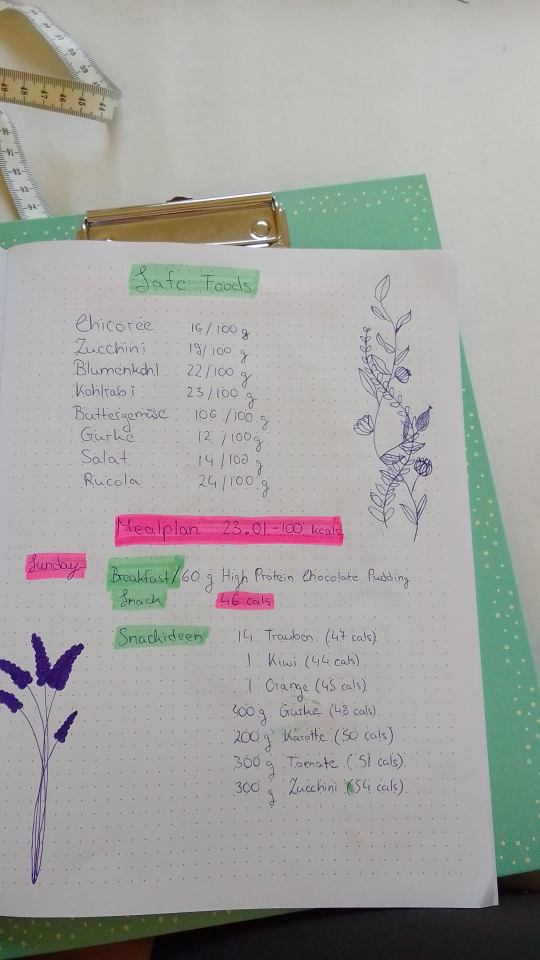 Safe Foods
Chicorée 16/100 g
Zucchini 19/100 g
Blumenkohl 22/100 g
Kohlrabi 23/100 g
Buttergemüse 106/100 g
Gurke 12/100g
Salat 14/100 g
Rucola 24/100 g
Mealplan 23.01 - 100 kcals
Sunday
Breakfast/ 60 g High Protein Chocolate Pudding
Snack 46 cals
Snackideen 14 Trauben (47 cals)
1 Kiwi (44 cals)
1 Orange (45 cals)
400 g Gurke (48 cals)
200 g Karotte (50 cals)
300 g Tomate (51 cals)
300 g Zucchini (54 cals)